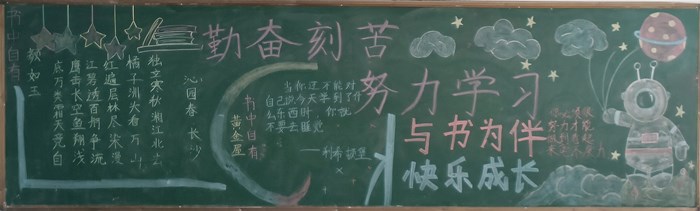 勤奋刻苦
努力学习
与书为伴
快乐成长
书中自有
颜如玉
沁园春 长沙
独立寒秋湘江北去
橘子洲头看万山
红遍层林尽染漫
江碧透百舸争流
鹰击长空鱼翔浅
底万类霜天竞自
书中自有
黄金屋
当你还不能对
自己说今天学到了什
么东西时 你就
不要去睡觉